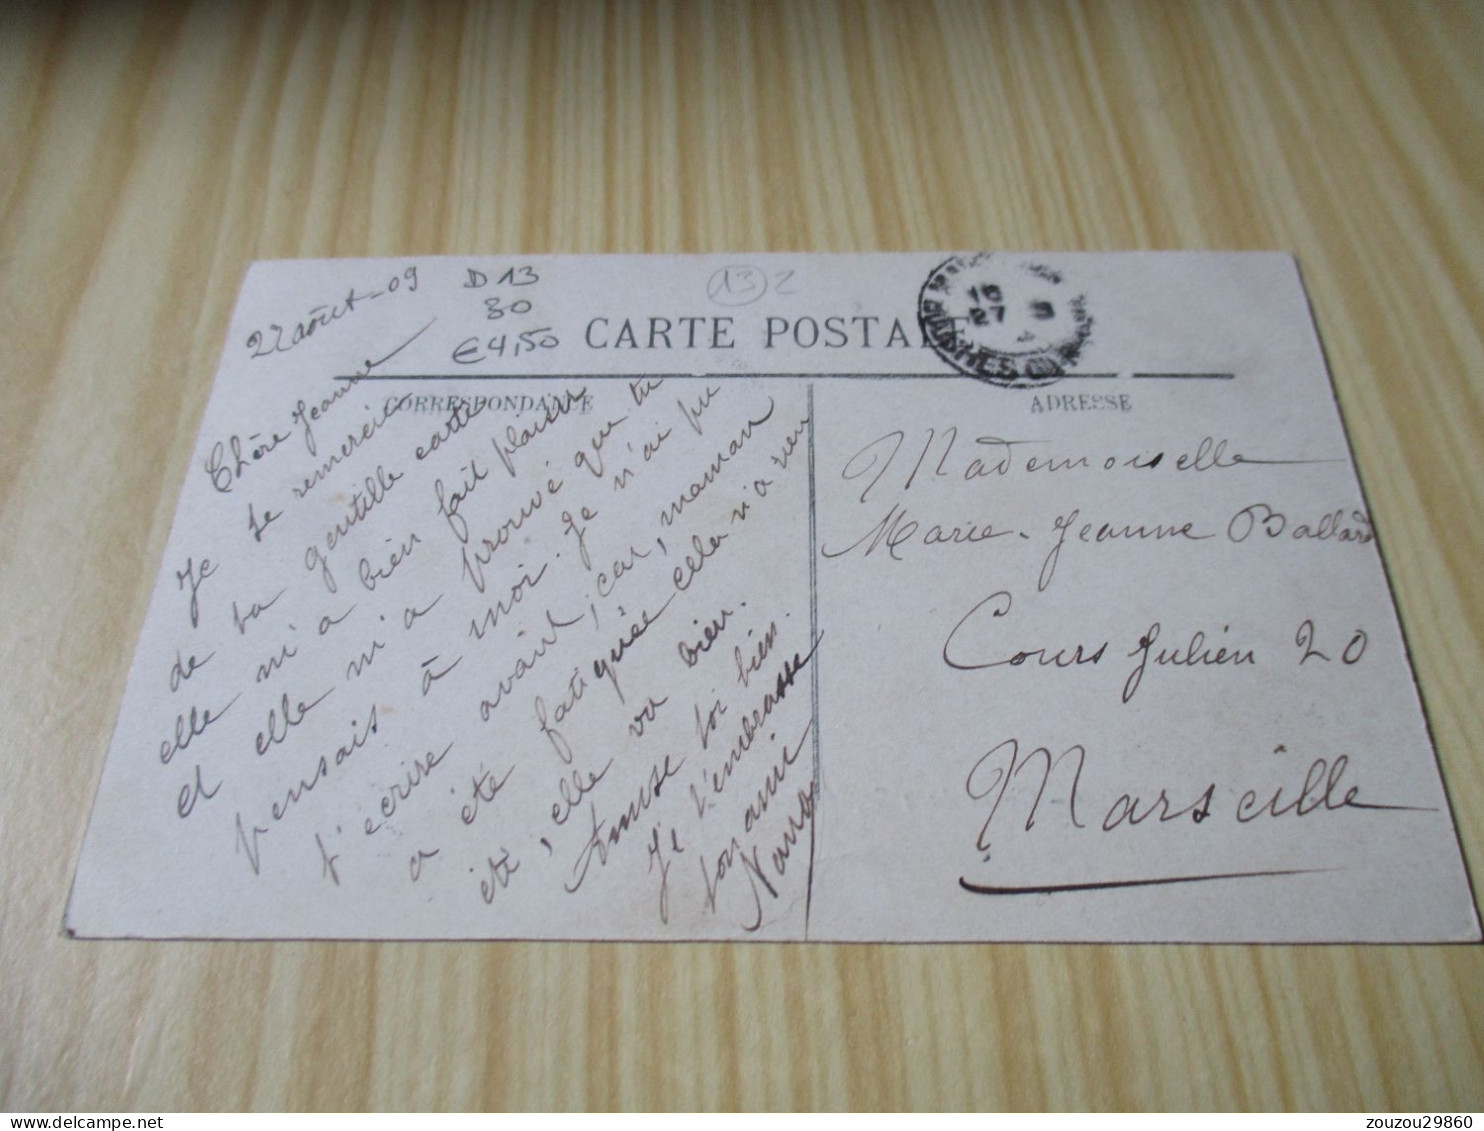 27 août - 09
D 13
30
€ 4,50
13 2
CARTE POSTALE
18
27 8
BOUCHES DU RHONE
CORRESPONDANCE
ADRESSE
Chère Jeanne
Je te remercie
de ta gentille carte
elle m'a bien fait plaisir
et elle m'a prouvé que tu
pensais à moi. Je n'ai pu
t'écrire avant, car, maman
a été fatiguée cela n'a rien
été, elle va bien.
Amuse toi bien.
Je t'embrasse
ton ami
Nano
Mademoiselle
Marie-Jeanne Ballard
Cours Julien 20
Marseille
zouzou29860